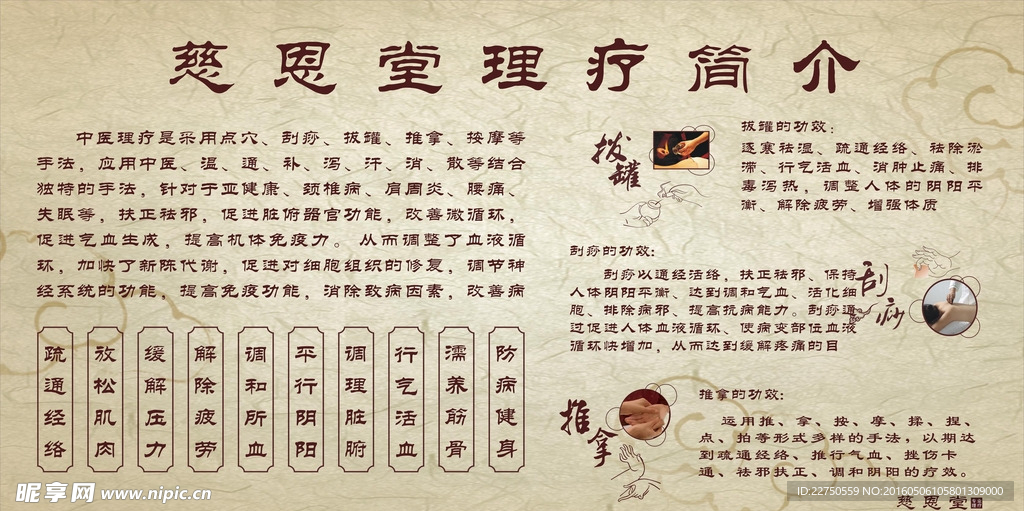 慈恩堂理疗简介
中医理疗是采用点穴、刮痧、拔罐、推拿、按摩等
手法，应用中医、温、通、补、泻、汗、消、散等结合
独特的手法，针对于亚健康、颈椎病、肩周炎、腰痛、
失眠等，扶正祛邪，促进脏俯器官功能，改善微循环，
促进气血生成，提高机体免疫力。从而调整了血液循
环，加快了新陈代谢，促进对细胞组织的修复，调节神
经系统的功能，提高免疫功能，消除致病因素，改善病
疏通经络
放松肌肉
缓解压力
解除疲劳
调和所血
平行阴阳
调理脏腑
行气活血
濡养筋骨
防病健身
拔罐
拔罐的功效：
逐寒祛湿、疏通经络、祛除淤
滞、行气活血、消肿止痛、排
毒泻热，调整人体的阴阳平
衡、解除疲劳、增强体质
刮痧的功效：
刮痧以通经活络，扶正祛邪、保持
人体阴阳平衡、达到调和气血、活化细
胞、排除病邪、提高抗病能力。刮痧通
过促进人体血液循环、使病变部位血液
循环快增加，从而达到缓解疼痛的目
刮痧
推拿
推拿的功效：
运用推、拿、按、摩、揉、捏、
点、拍等形式多样的手法，以期达
到疏通经络、推行气血、挫伤卡
通、祛邪扶正、调和阴阳的疗效。
慈恩堂
昵享网 www.nipic.cn
ID:22750559 NO:20160506105801309000